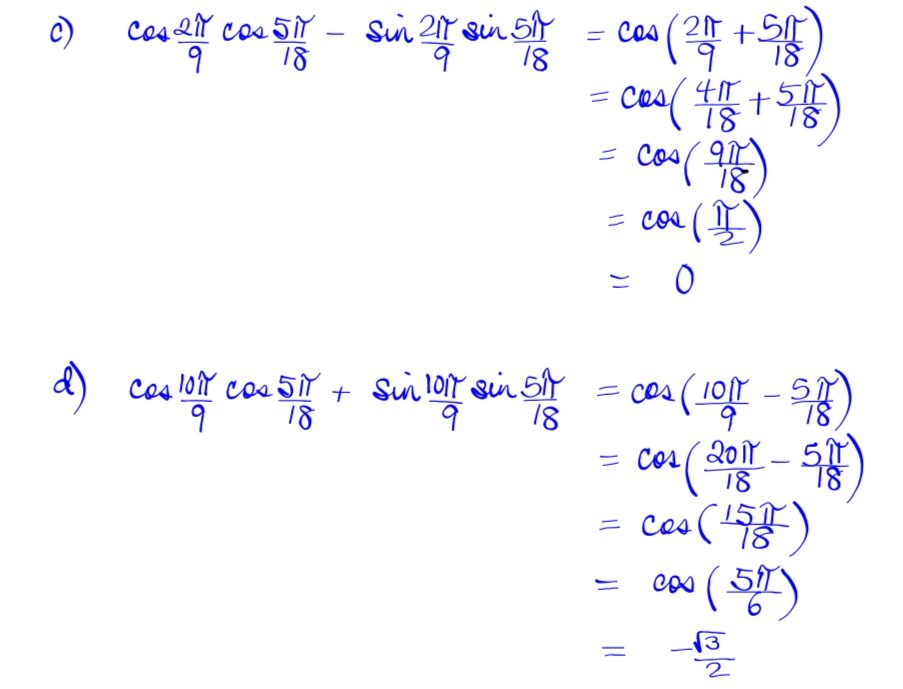 c) cos 2π/9 cos 5π/18 − sin 2π/9 sin 5π/18 = cos(2π/9 + 5π/18)
= cos(4π/18 + 5π/18)
= cos(9π/18)
= cos(π/2)
= 0
d) cos 10π/9 cos 5π/18 + sin 10π/9 sin 5π/18 = cos(10π/9 − 5π/18)
= cos(20π/18 − 5π/18)
= cos(15π/18)
= cos(5π/6)
= −√3/2